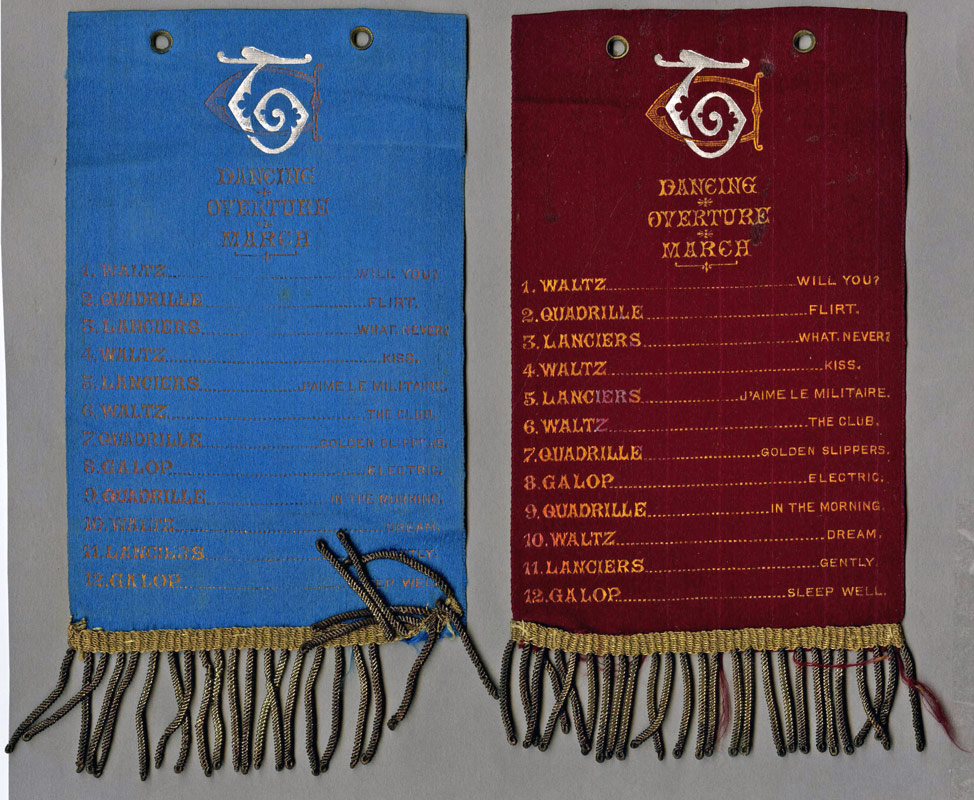 DANCING
OVERTURE
MARCH
1. WALTZ WILL YOU?
2. QUADRILLE FLIRT.
3. LANCIERS WHAT NEVER?
4. WALTZ KISS.
5. LANCIERS J'AIME LE MILITAIRE.
6. WALTZ THE CLUB.
7. QUADRILLE GOLDEN SLIPPERS.
8. GALOP ELECTRIC.
9. QUADRILLE IN THE MORNING.
10. WALTZ DREAM.
11. LANCIERS
12. GALOP WELL
DANCING
OVERTURE
MARCH
1. WALTZ WILL YOU?
2. QUADRILLE FLIRT.
3. LANCIERS WHAT, NEVER?
4. WALTZ KISS.
5. LANCIERS J'AIME LE MILITAIRE.
6. WALTZ THE CLUB.
7. QUADRILLE GOLDEN SLIPPERS.
8. GALOP ELECTRIC.
9. QUADRILLE IN THE MORNING.
10. WALTZ DREAM.
11. LANCIERS GENTLY.
12. GALOP SLEEP WELL.